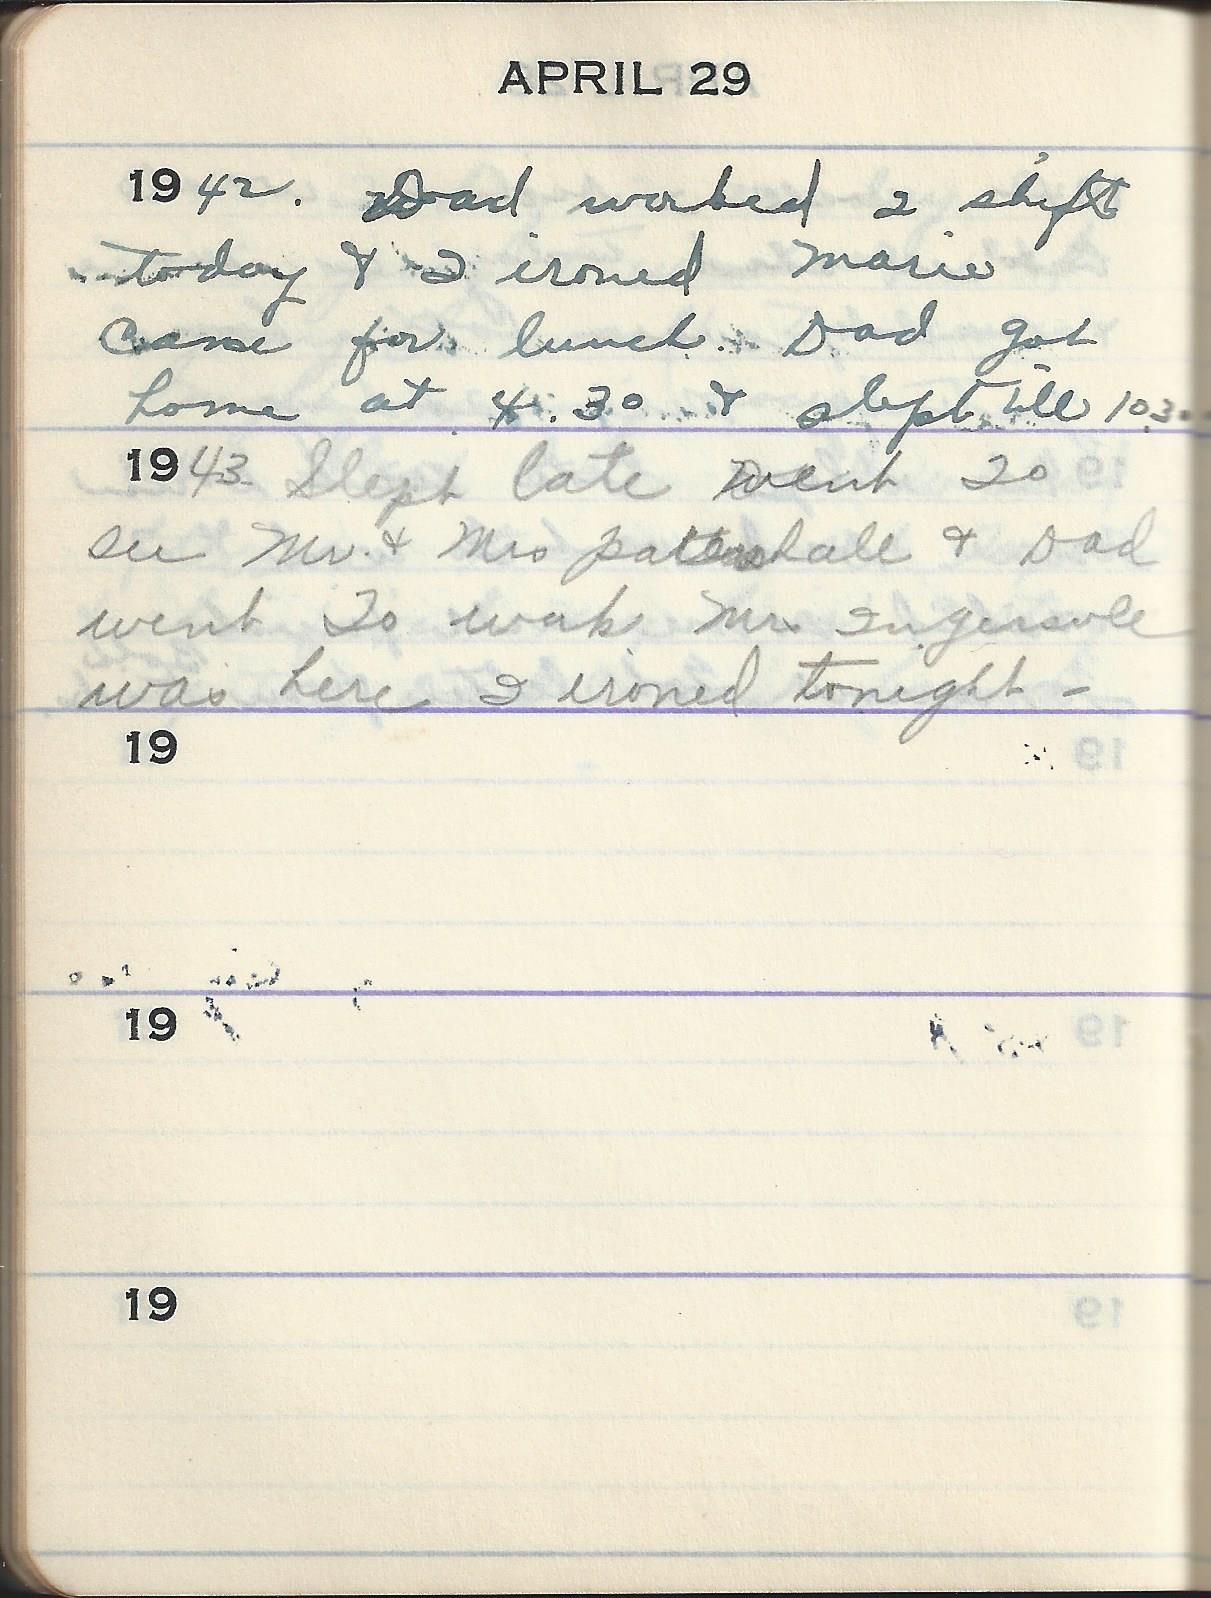 APRIL 29
1942. Dad worked 2 shift
today & I ironed Marie
Came for lunch. Dad got
home at 4.30 & slept till 10.30
1943 Slept late went to
see Mr. & Mrs & Dad
went to work Mr. Ingersole
was here I ironed tonight -
19
19
19